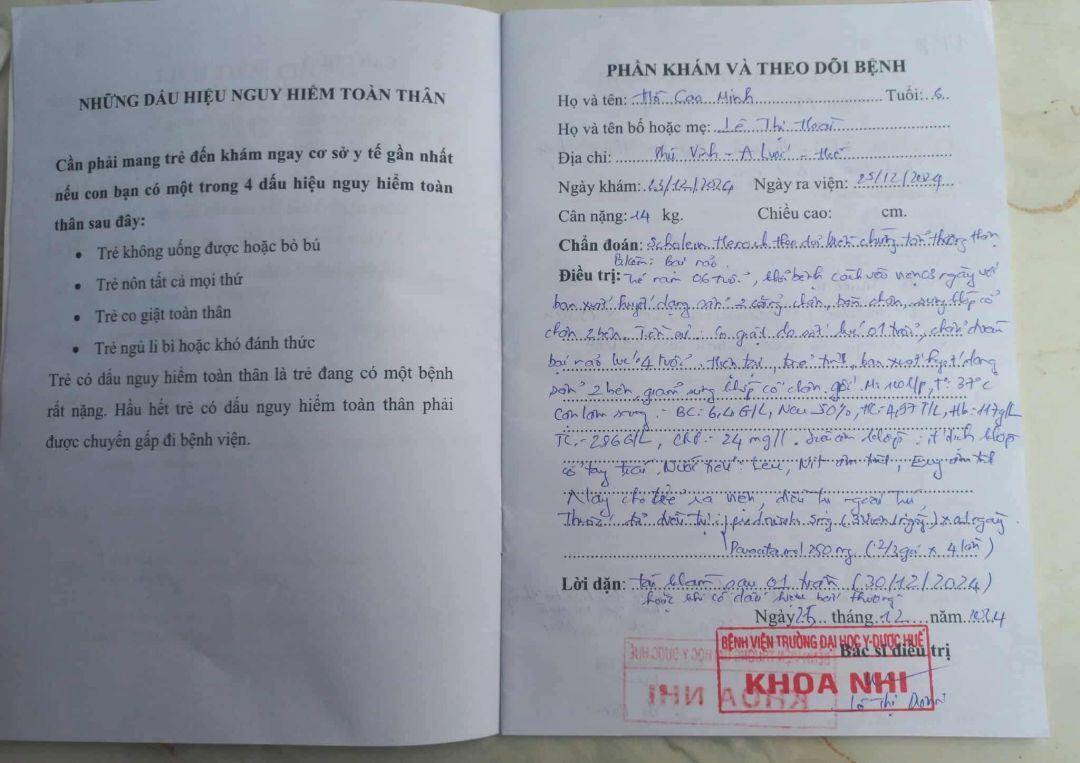 NHỮNG DẤU HIỆU NGUY HIỂM TOÀN THÂN
Cần phải mang trẻ đến khám ngay cơ sở y tế gần nhất
nếu con bạn có một trong 4 dấu hiệu nguy hiểm toàn
thân sau đây:
• Trẻ không uống được hoặc bỏ bú
• Trẻ nôn tất cả mọi thứ
• Trẻ co giật toàn thân
• Trẻ ngủ li bì hoặc khó đánh thức
Trẻ có dấu nguy hiểm toàn thân là trẻ đang có một bệnh
rất nặng. Hầu hết trẻ có dấu nguy hiểm toàn thân phải
được chuyển gấp đi bệnh viện.
PHẦN KHÁM VÀ THEO DÕI BỆNH
Họ và tên: Hồ Cao Minh Tuổi: 6
Họ và tên bố hoặc mẹ: Lê Thị Hoài
Địa chỉ: Phú Vinh - A Lưới - Huế
Ngày khám: 23/12/2024 Ngày ra viện: 25/12/2024
Cân nặng: 14 kg. Chiều cao: cm.
Chẩn đoán: Scholein Henoch theo dõi biến chứng tổn thương thận
B.kèm: Bại não
Điều trị: Trẻ nam 06 tuổi, khởi bệnh cách vào viện 03 ngày với
ban xuất huyết dạng sẩn 2 cẳng chân, bàn chân, sưng khớp cổ
chân 2 bên. Tiền sử: Co giật do sốt lúc 01 tuổi, chẩn đoán
bại não lúc 4 tuổi. Hiện tại, trẻ tỉnh, ban xuất huyết dạng
sẩn 2 bên, giảm sưng khớp cổ chân, gối M: 100 l/p, t°: 37°C
Cận lâm sàng: BC: 6,4 G/L, Neu 50%, HC: 4,97 T/L, Hb: 117 g/L
TC: 286 G/L, CRP: 24 mg/l. Siêu âm khớp: ít dịch khớp
cổ tay trái. Nước tiểu: Leu, Nit âm tính, Ery âm tính
Nay cho trẻ ra viện, điều trị ngoại trú
Thuốc đã điều trị: prednisolon 5mg (3 viên/ngày) x ngày
Paracetamol 250mg (2/3 gói x 4 lần)
Lời dặn: tái khám sau 01 tuần (30/12/2024)
hoặc khi có dấu hiệu bất thường
Ngày 25 tháng 12 năm 2024
BỆNH VIỆN TRƯỜNG ĐẠI HỌC Y-DƯỢC HUẾ
Bác sĩ điều trị
KHOA NHI
Lê Thị